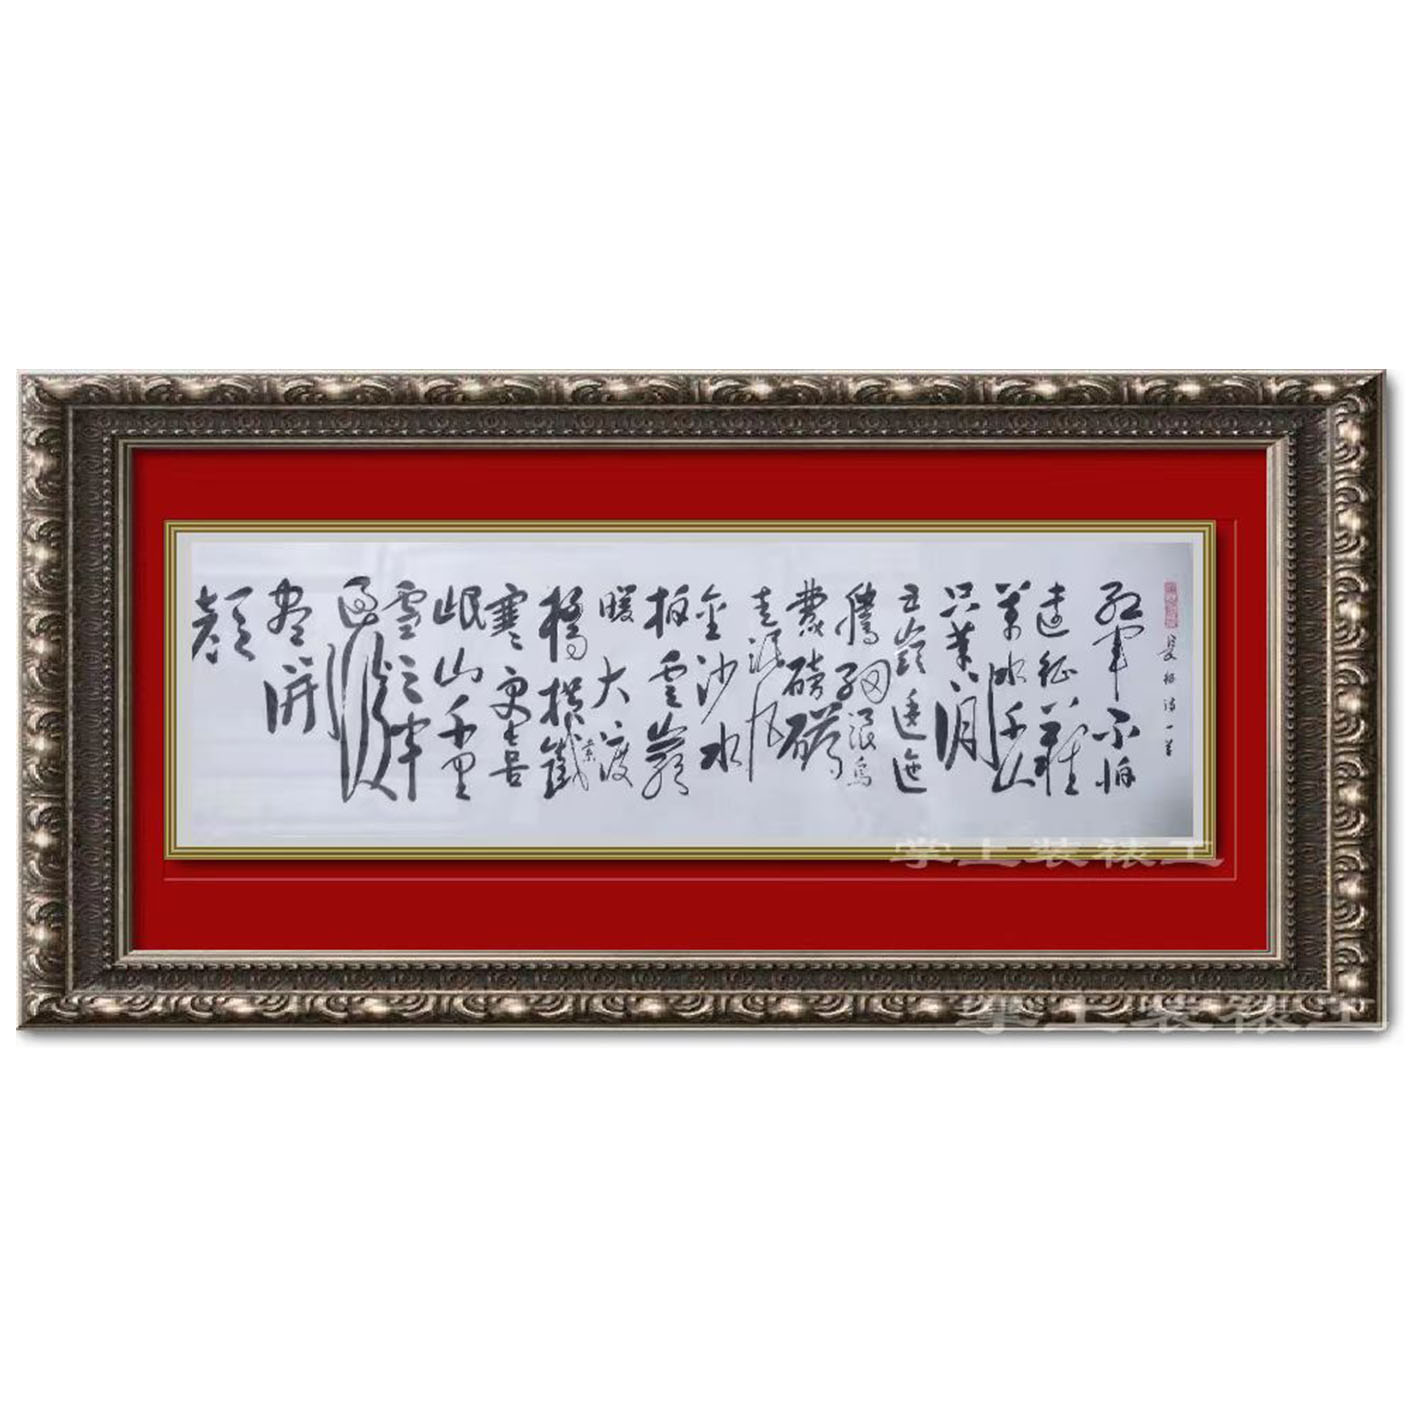 長征詩一首
紅軍不怕
遠征難
萬水千山
只等閒
五嶺逶迤
騰細浪烏
蒙磅礴
走泥丸
金沙水
拍雲崖
暖大渡
橋橫鐵索
寒更喜
岷山千里
雪三軍
過後
盡開
顏
掌上装裱工
掌上装裱工